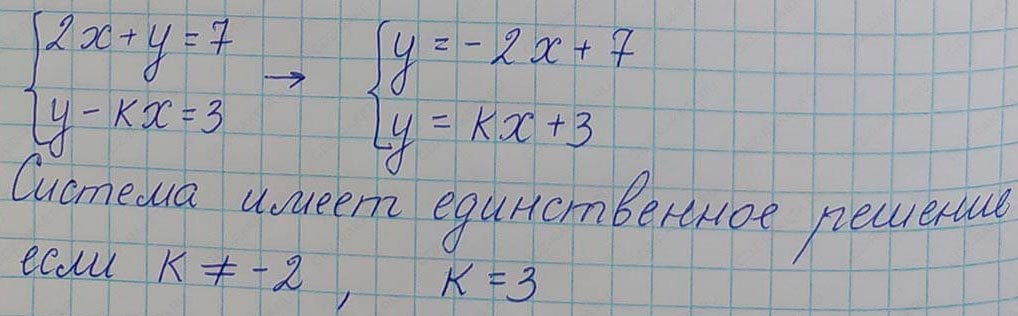 2x + y = 7 → y = -2x + 7
y - kx = 3 y = kx + 3
Система имеет единственное решение
если k ≠ -2 , k = 3